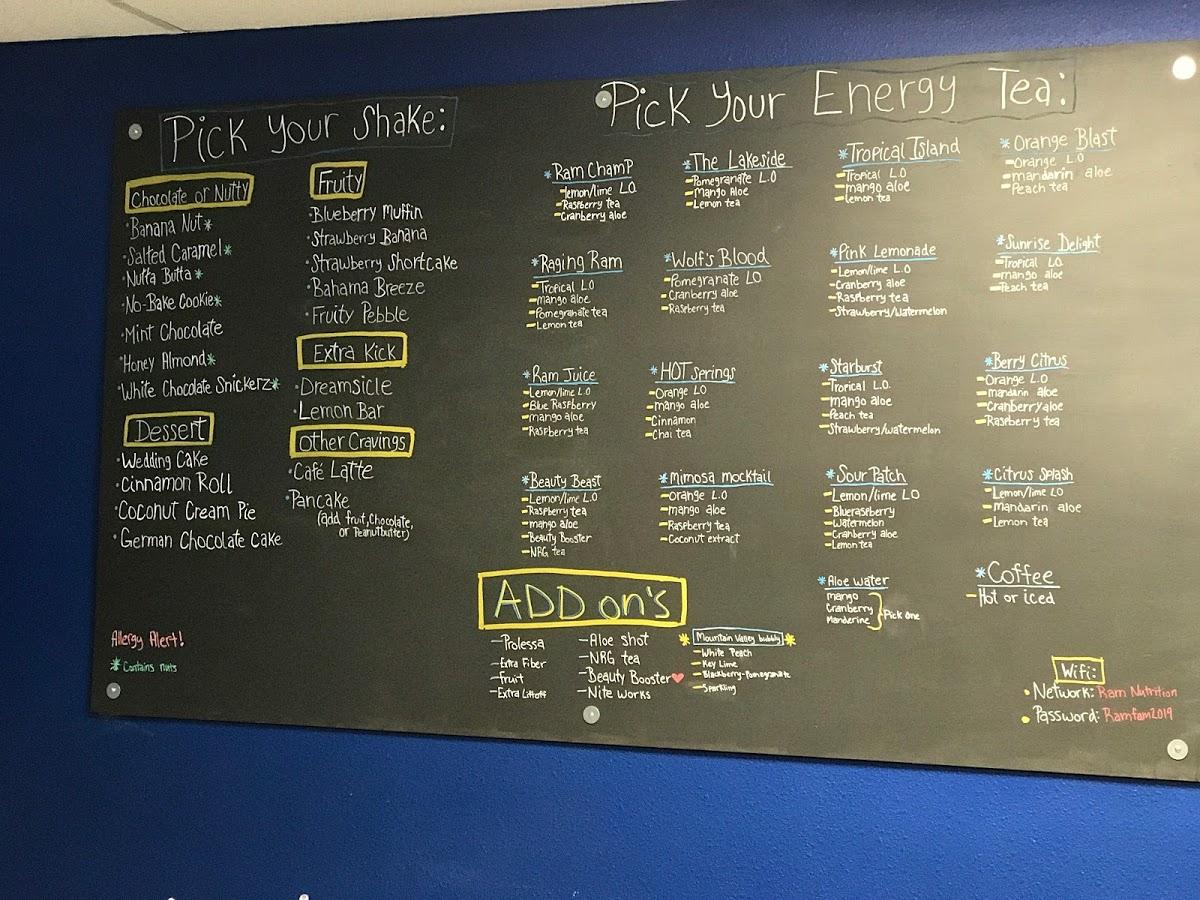 Pick Your Shake:
Chocolate or Nutty
·Banana Nut*
·Salted Caramel*
·Nutta Butta*
·No-Bake Cookie*
·Mint Chocolate
·Honey Almond*
·White Chocolate Snickerz*
Dessert
·Wedding Cake
·Cinnamon Roll
·Coconut Cream Pie
·German Chocolate Cake
Fruity
·Blueberry Muffin
·Strawberry Banana
·Strawberry Shortcake
·Bahama Breeze
·Fruity Pebble
Extra Kick
·Dreamsicle
·Lemon Bar
Other Cravings
·Café Latte
·Pancake
(add fruit, Chocolate,
or Peanutbutter)
Allergy Alert!
* Contains nuts
Pick Your Energy Tea:
*Ram Champ
-lemon/lime L.O
-Raspberry tea
-Cranberry aloe
*The Lakeside
-Pomegranate L.O
-Mango Aloe
-Lemon tea
*Tropical Island
-Tropical L.O
-mango aloe
-lemon tea
*Orange Blast
-Orange L.O
-mandarin aloe
-Peach tea
*Raging Ram
-Tropical L.O
-mango aloe
-Pomegranate tea
-Lemon tea
*Wolf's Blood
-Pomegranate LO
-Cranberry aloe
-Raspberry tea
*Pink Lemonade
-Lemon/lime L.O
-Cranberry aloe
-Raspberry tea
-Strawberry/Watermelon
*Sunrise Delight
-Tropical LO
-mango aloe
-Peach tea
*Ram Juice
-Lemon/lime L.O
-Blue Raspberry
-mango aloe
-Raspberry tea
*HOT Springs
-Orange LO
-mango aloe
-Cinnamon
-Chai tea
*Starburst
-Tropical L.O.
-mango aloe
-Peach tea
-Strawberry/watermelon
*Berry Citrus
-Orange L.O
-mandarin aloe
-Cranberry aloe
-Raspberry tea
*Beauty Beast
-Lemon/lime L.O
-Raspberry tea
-mango aloe
-Beauty Booster
-NRG tea
*Mimosa mocktail
-Orange L.O
-mango aloe
-Raspberry tea
-Coconut extract
*Sour Patch
-Lemon/lime LO
-Blueraspberry
-Watermelon
-Cranberry aloe
-Lemon tea
*Citrus Splash
-Lemon/lime LO
-Mandarin aloe
-Lemon tea
*Aloe water
mango
Cranberry
Manderine
Pick one
*Coffee
-Hot or iced
ADD on's
-Prolessa
-Extra Fiber
-fruit
-Extra Liftoff
-Aloe shot
-NRG tea
-Beauty Booster♥
-Nite works
*Mountain Valley bubbly*
-White Peach
-Key Lime
-Blackberry-Pomegranate
-Sparkling
Wifi:
·Network: Ram Nutrition
·Password: Ramfam2019